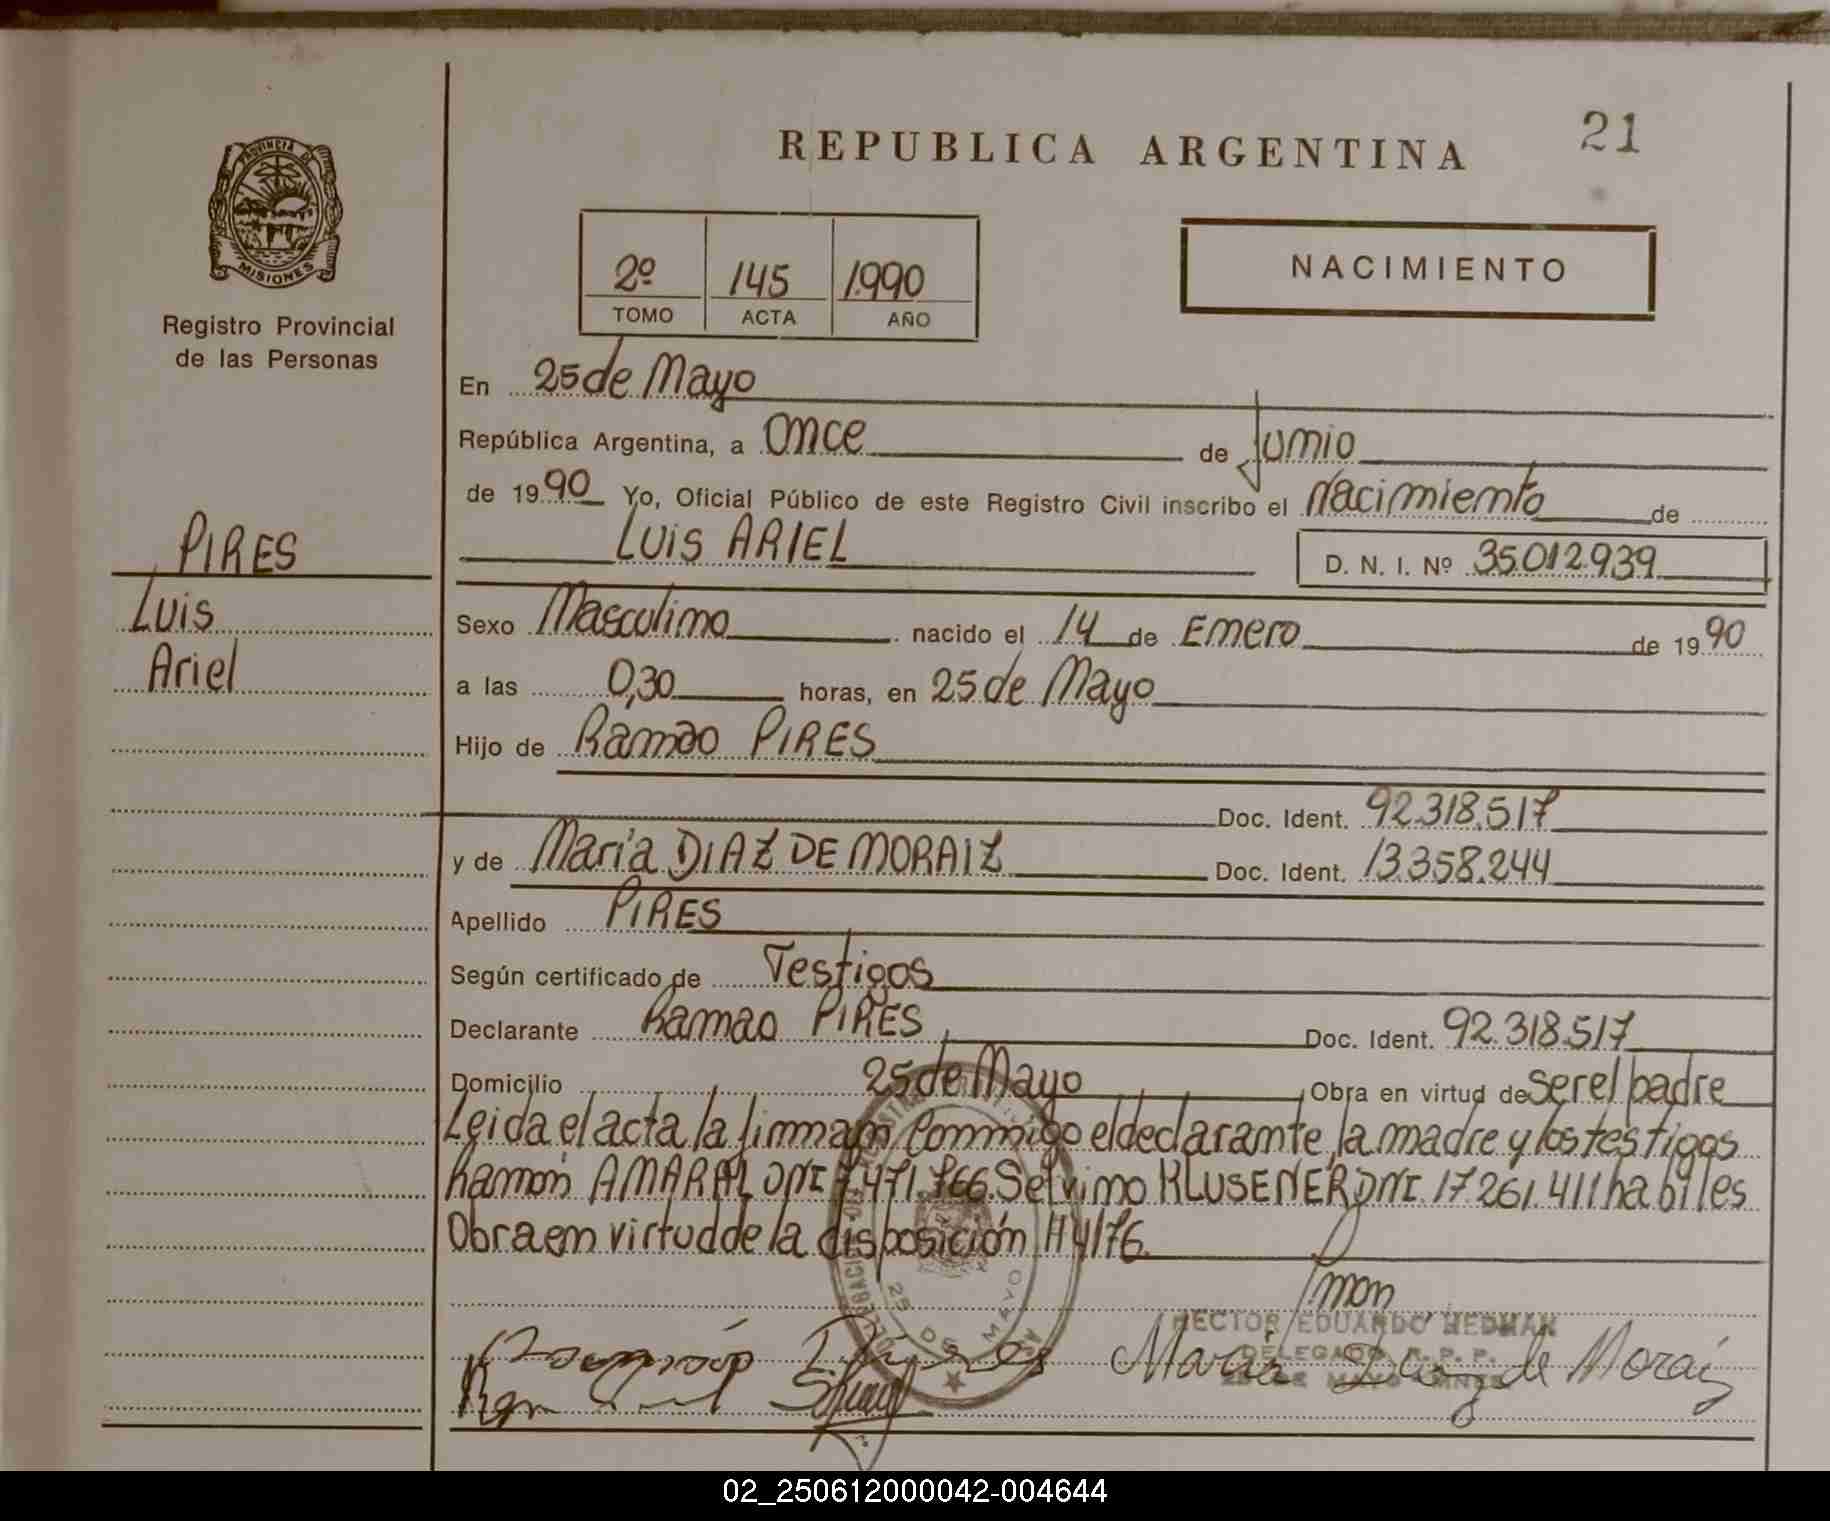 21
REPUBLICA ARGENTINA
PROVINCIA DE
MISIONES
Registro Provincial
de las Personas
2º 145 1.990
TOMO ACTA AÑO
NACIMIENTO
En 25 de Mayo
República Argentina, a Once de Junio
de 1990 Yo, Oficial Público de este Registro Civil inscribo el Nacimiento de
LUIS ARIEL D. N. I. Nº 35.012.939
PIRES
Luis
Ariel
Sexo Masculino nacido el 14 de Enero de 1990
a las 0,30 horas, en 25 de Mayo
Hijo de Ramao PIRES
Doc. Ident. 92.318.517
y de Maria DIAZ DE MORAIZ Doc. Ident. 13.358.244
Apellido PIRES
Según certificado de Testigos
Declarante Ramao PIRES Doc. Ident. 92.318.517
Domicilio 25 de Mayo Obra en virtud de ser el padre
Leida el acta la firman conmigo el declarante, la madre y los testigos
Ramón AMARAL DNI 7.471.766. Selvino KLUSENER DNI. 17.261.411 habiles
Obra en virtud de la disposición 114/76.
25 DE MAYO
HECTOR EDUARDO HEDMAN
DELEGADO R. P. P.
25 DE MAYO - MNES
Maria Diaz de Morais
02_250612000042-004644